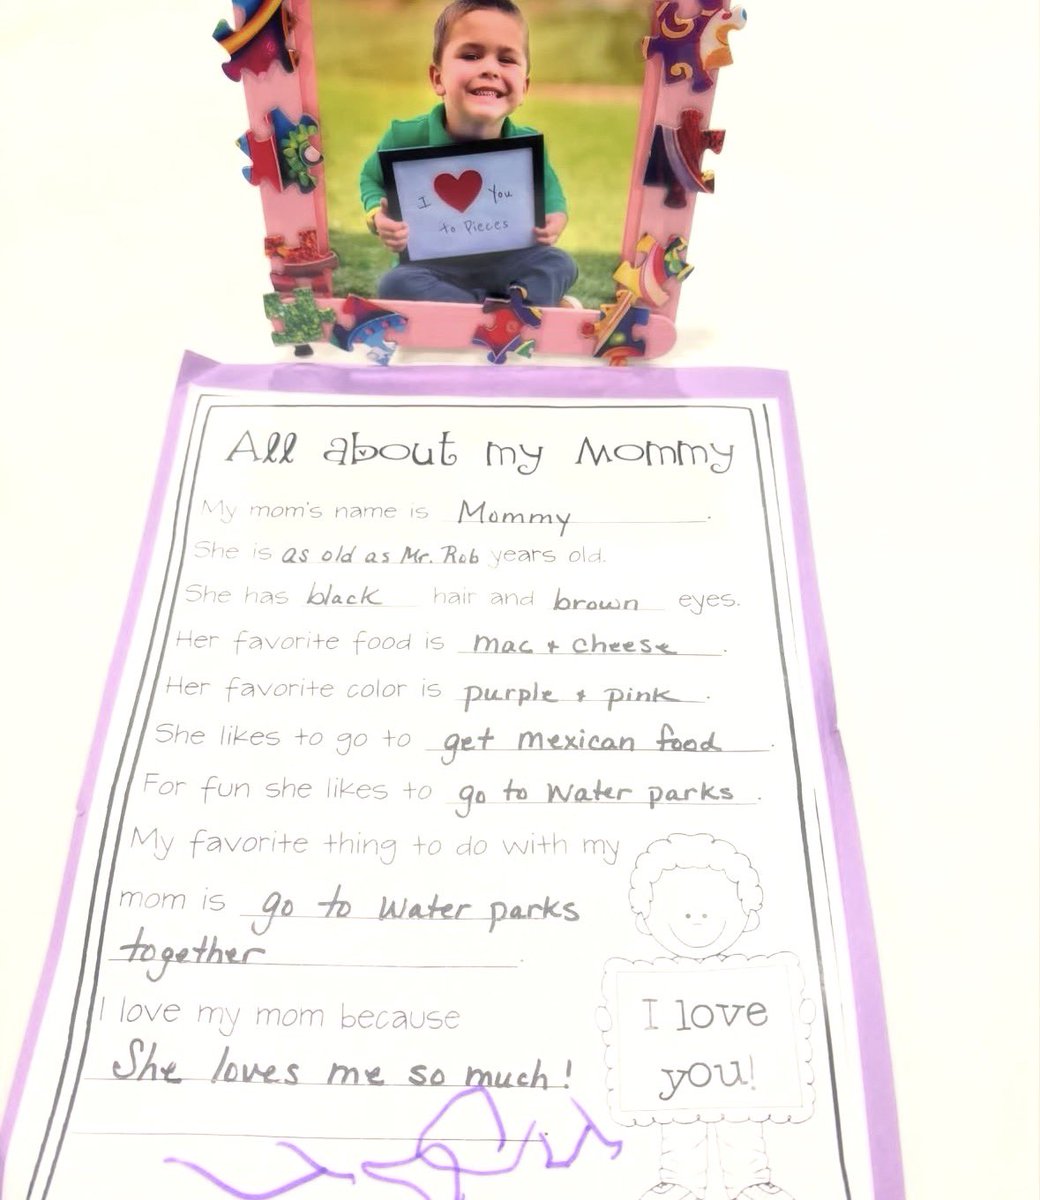 I You
to Pieces
All about my Mommy
My mom's name is Mommy.
She is as old as Mr. Rob years old.
She has black hair and brown eyes.
Her favorite food is mac + cheese.
Her favorite color is purple + pink.
She likes to go to get mexican food.
For fun she likes to go to Water parks.
My favorite thing to do with my
mom is go to Water parks
together.
I love my mom because
She loves me so much!
I love
you!